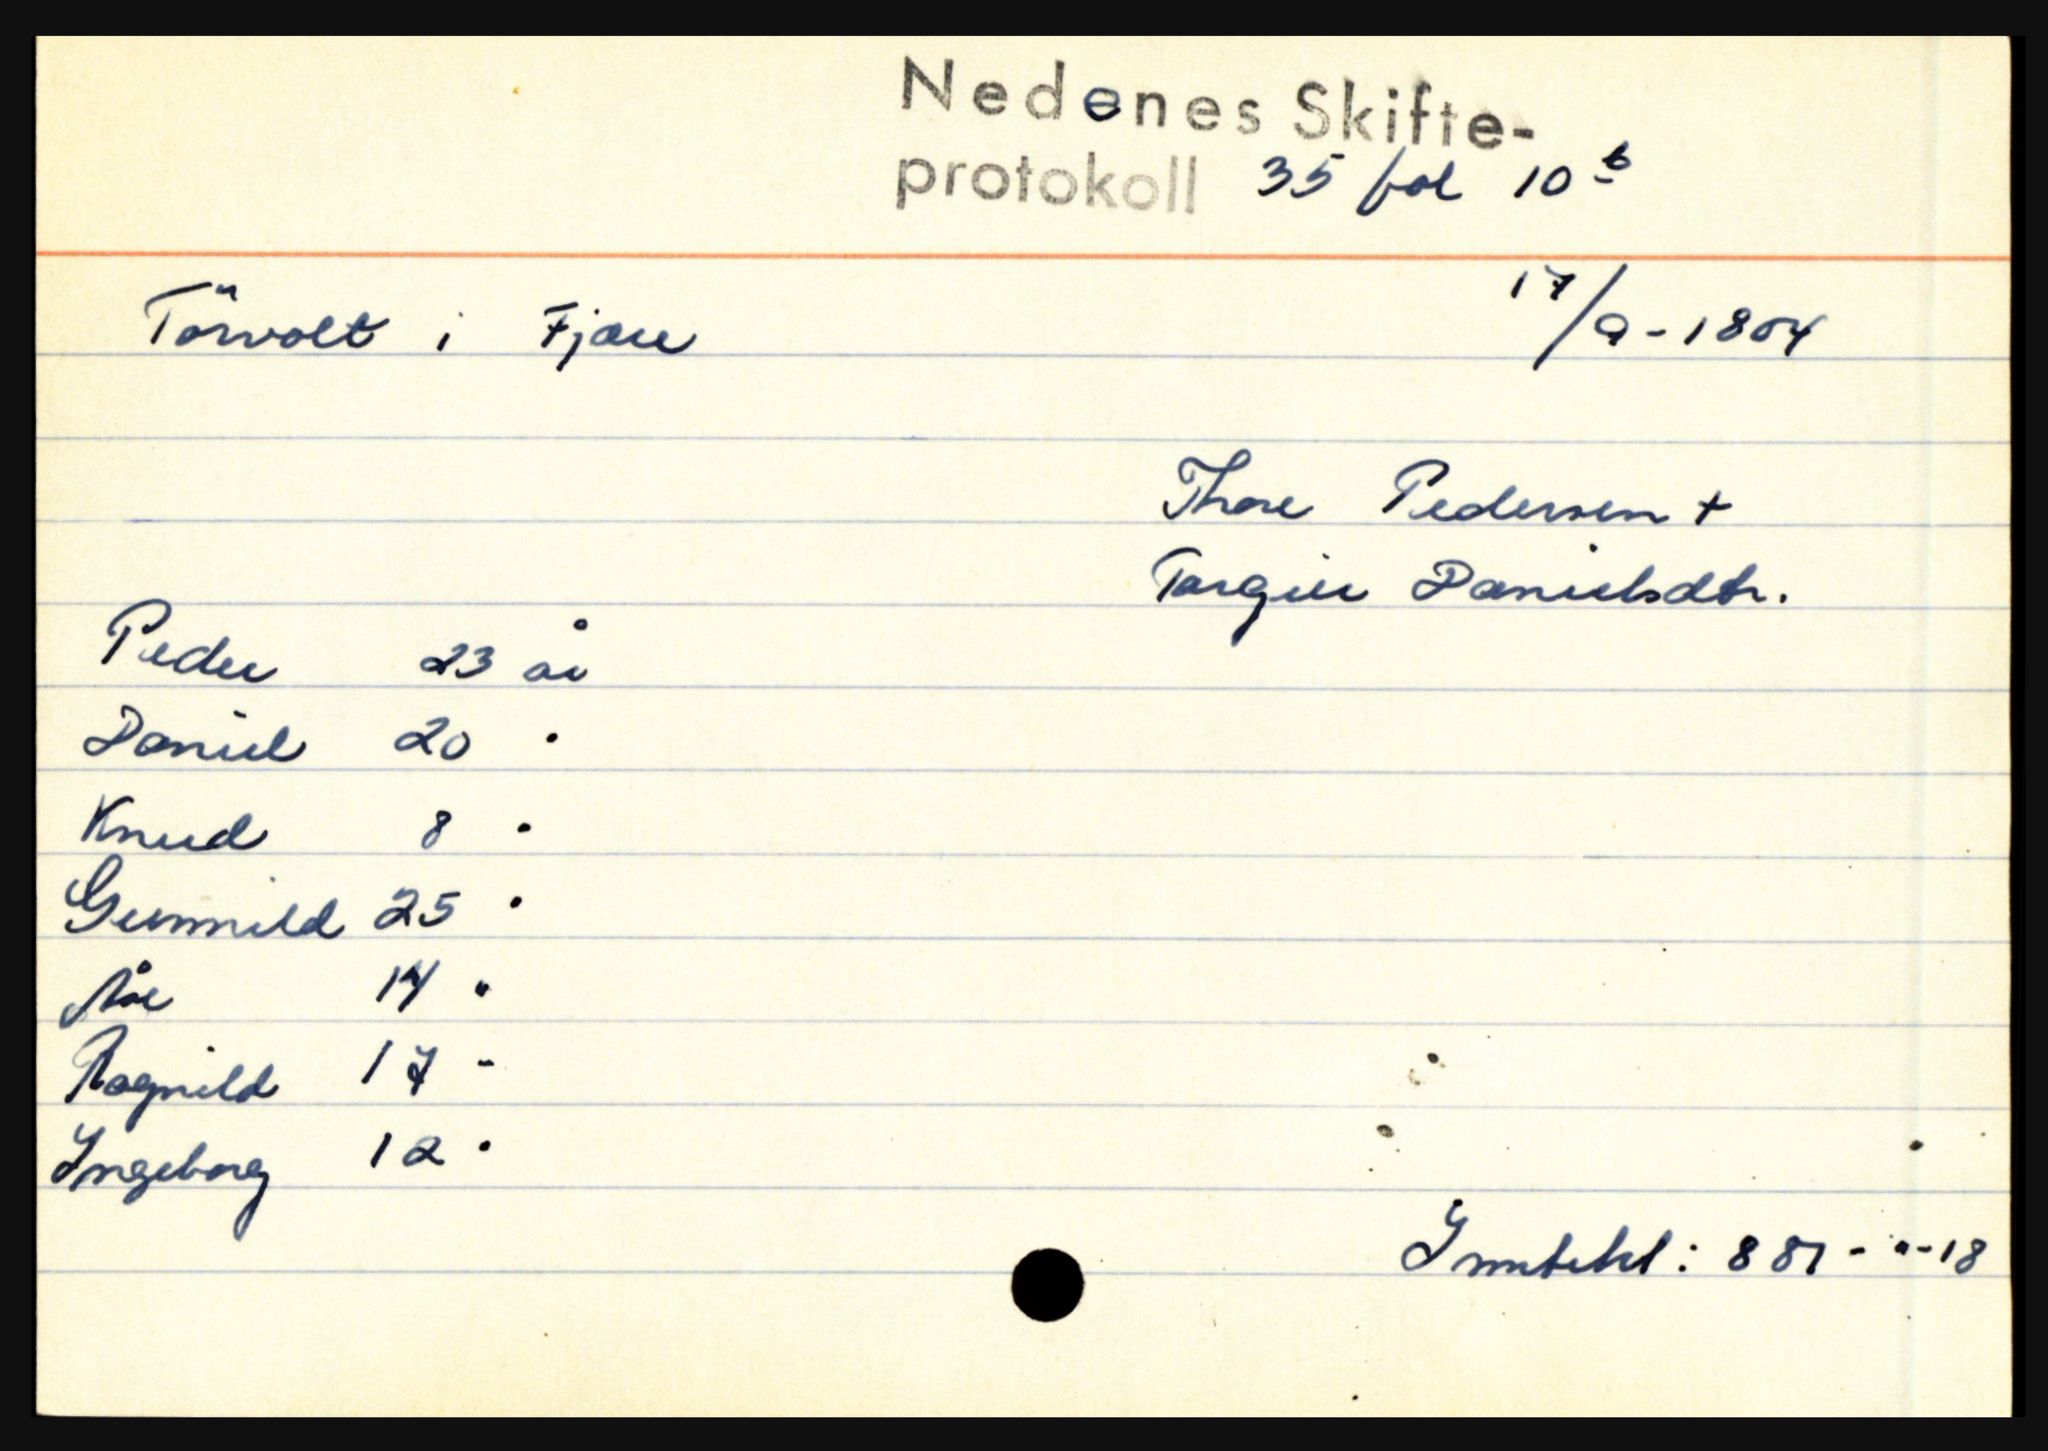 Nedenes Skifte-
protokoll 35 fol 10 b
Törvolt i Fjære 17/9-1804
Thore Pedersen +
Torgier Danielsdtr.
Peder 23 år
Daniel 20 "
Knud 8 "
Gunnild 25 "
Åse 14 "
Ragnild 17 "
Ingeborg 12 "
Inntekt: 881 - "-18